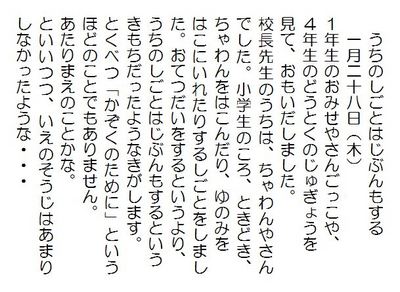 うちのしごとはじぶんもする
一月二十八日（木）
１年生のおみせやさんごっこや、
４年生のどうとくのじゅぎょうを
見て、おもいだしました。
校長先生のうちは、ちゃわんやさん
でした。小学生のころ、ときどき、
ちゃわんをはこんだり、ゆのみを
はこにいれたりするしごとをしまし
た。おてつだいをするというより、
うちのしごとはじぶんもするという
きもちだったようなきがします。
とくべつ「かぞくのために」という
ほどのことでもありません。
あたりまえのことかな。
といいつつ、いえのそうじはあまり
しなかったような・・・